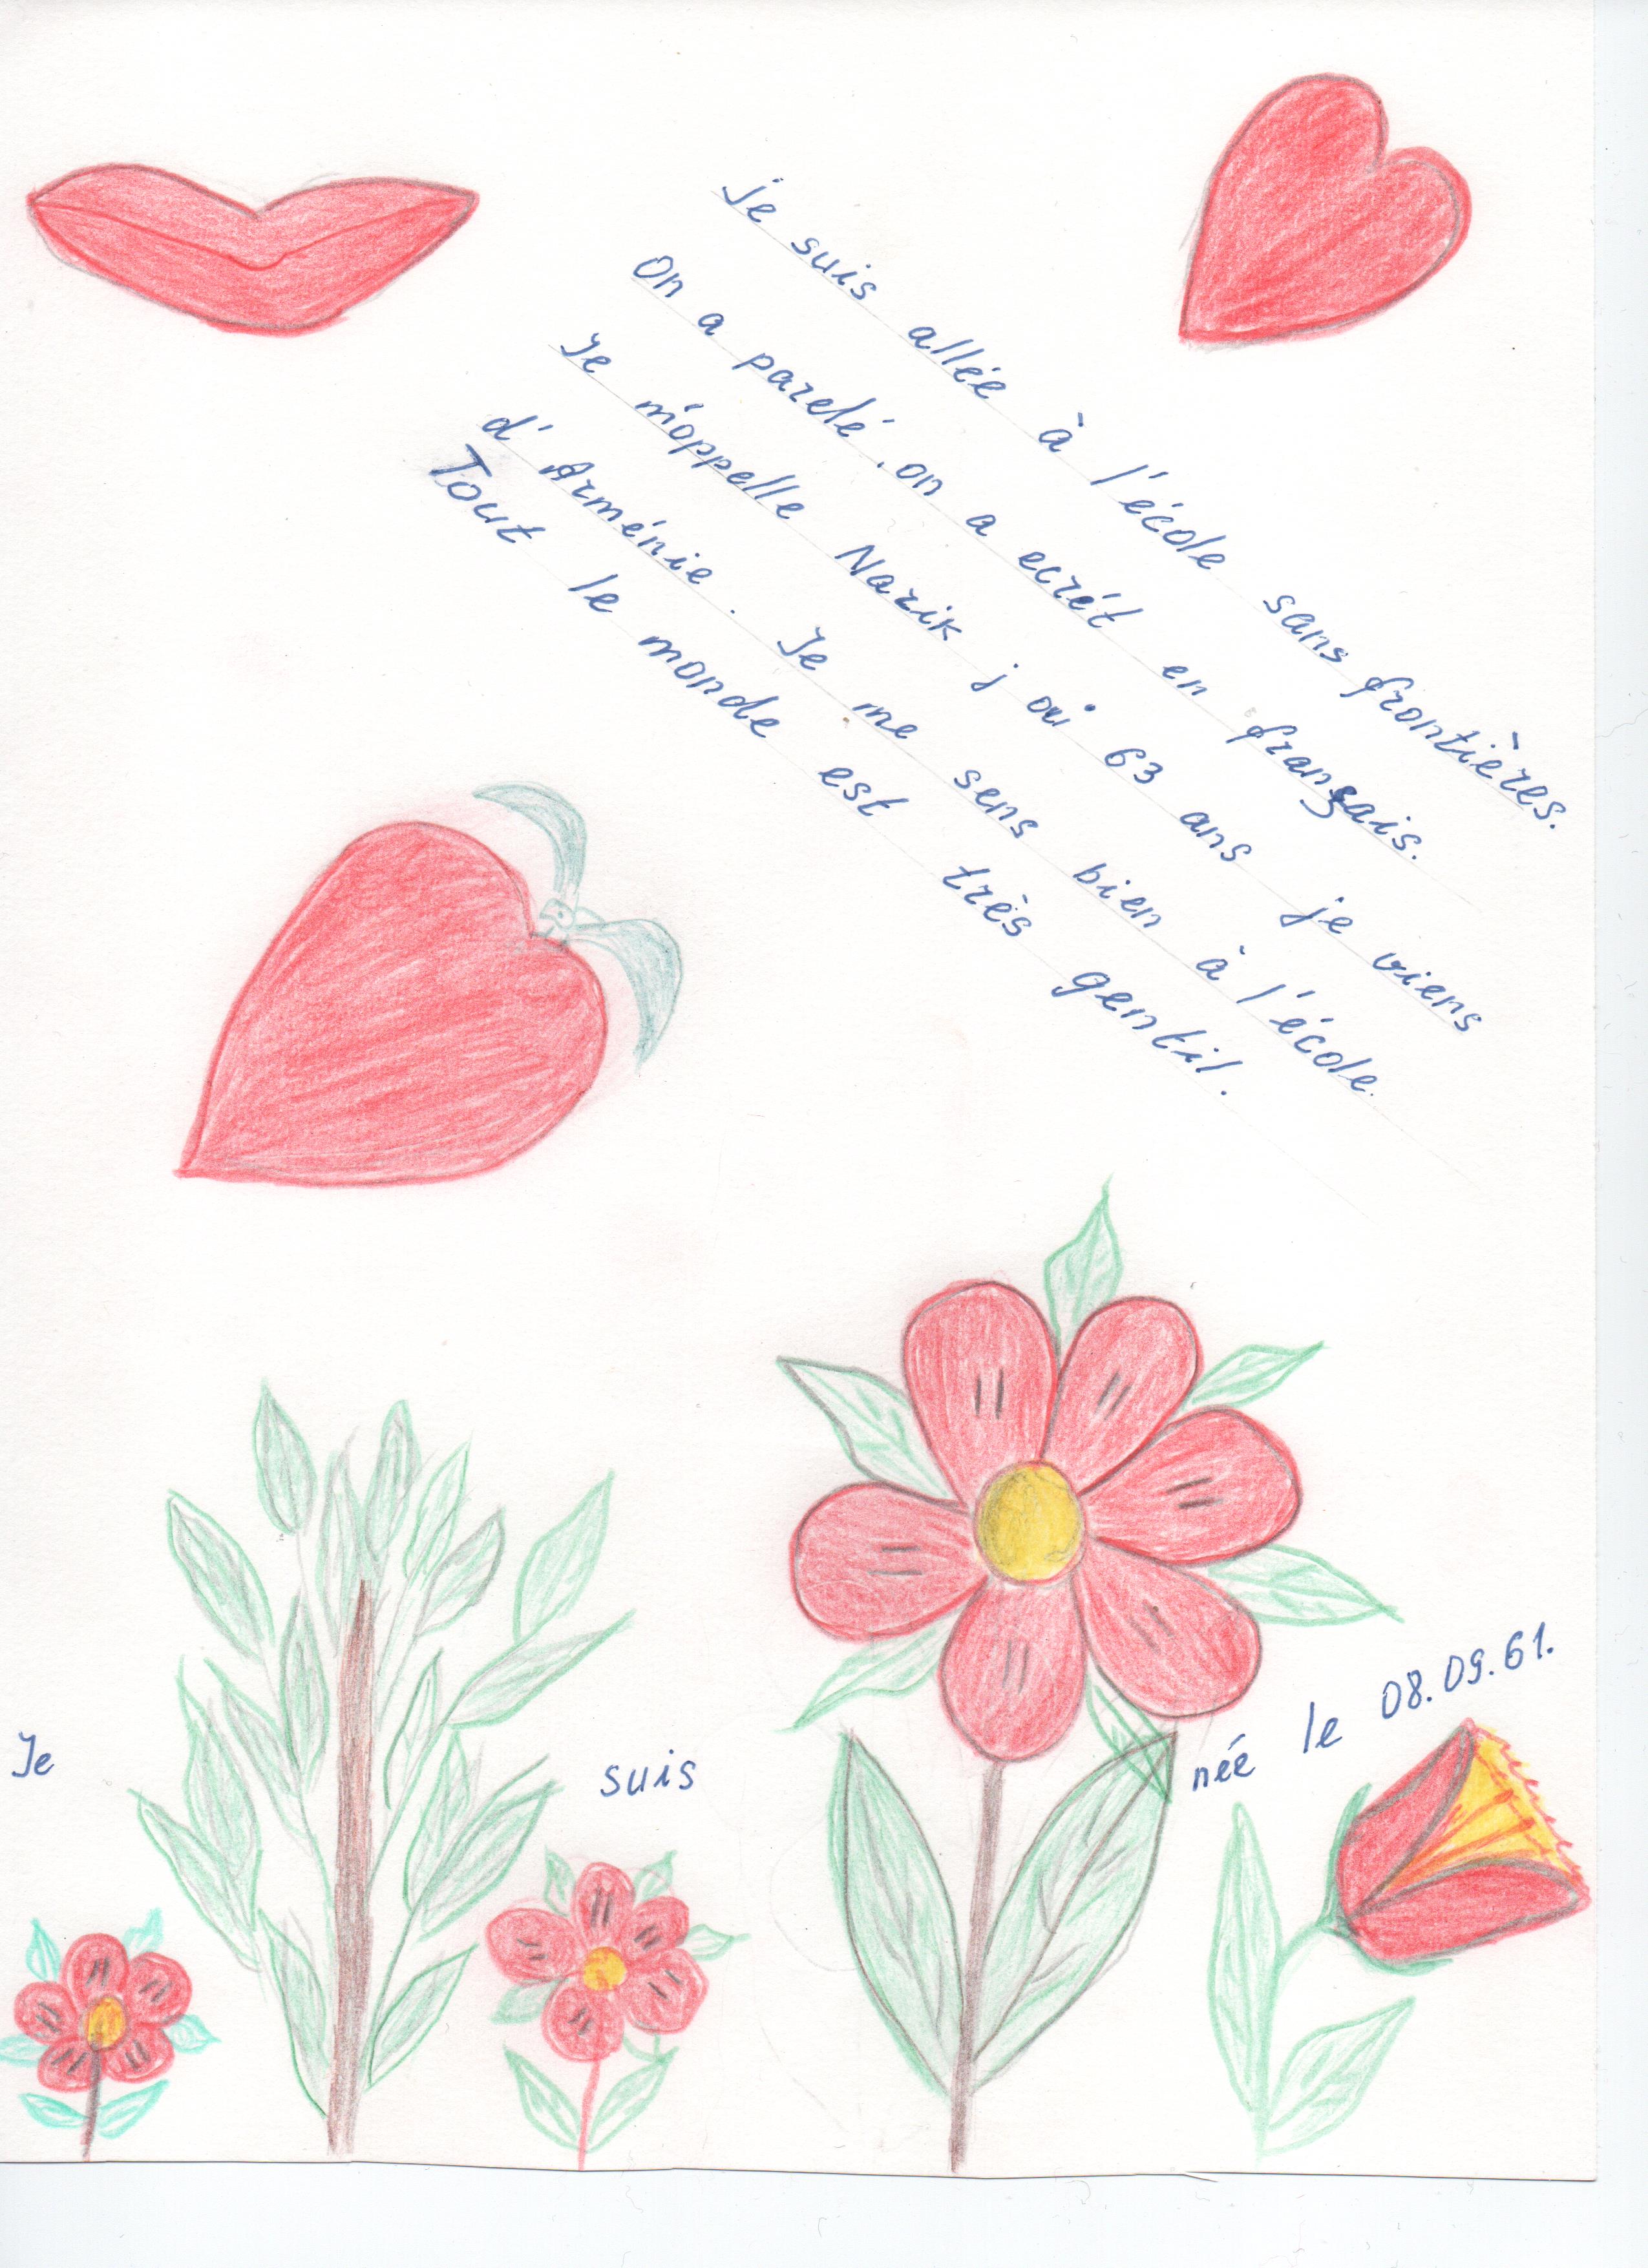 Je suis allée à l'école sans frontières.
On a parelé. on a ecrét en français.
Je m'oppelle Nazik j ai 63 ans je viens
d'Arménie. Je me sens bien à l'école.
Tout le monde est très gentil.
Je suis née le 08.09.61.